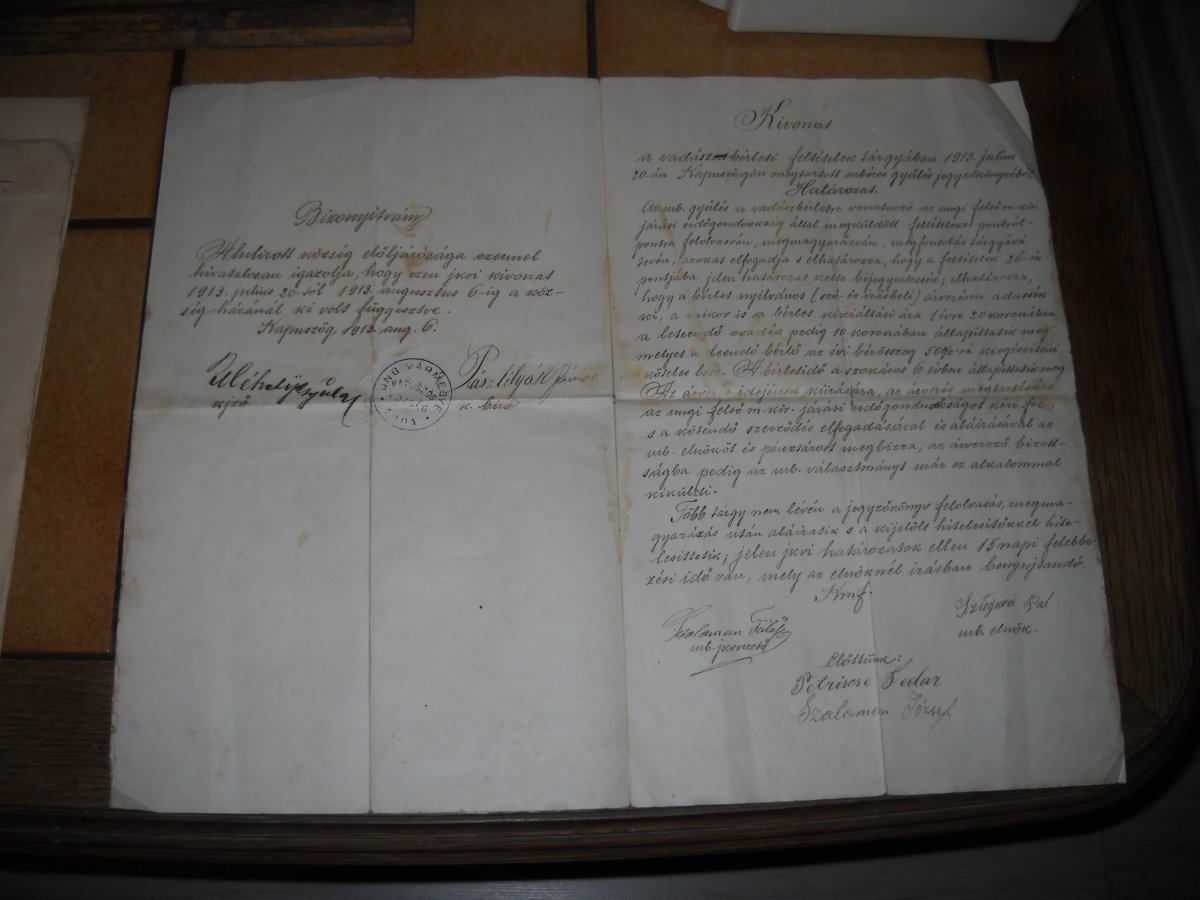 Bizonyitvány
Alulirott község előljárósága ezennel
hivatalosan igazolja, hogy ezen jkvi kivonat
1913. julius 20-tól 1913. augusztus 6-ig a köz-
ség-házánál ki volt függesztve.
Kapuszög 1913. aug. 6.
Mihályi Gyula
kjző
UNG VÁRMEGYE
KAPUSZÖG
KÖZSÉG
k. biró
Kivonat
a vadászbérleti feltételek tárgyában 1913. julius
20-án Kapuszögön megtartott urbéres gyülés jegyzőkönyvéből
Határozat.
Az urb. gyülés a vadászbérletre vonatkozó az ungi felső m. kir.
járási erdőgondnokság által megküldött feltételeket pontról-
pontra felolvasván, megmagyarázván, megfontolás tárgyává
tevén, azokat elfogadja s elhatározza, hogy a feltételek 26-ik
pontjába jelen határozat kelte bejegyeztessék; elhatározza,
hogy a bérlet nyilvános (szó- és irásbeli) árverésen adassék
ki, a mikor is a bérlet kikiáltási ára 1 évre 20 koronában,
a leteendő ovadék pedig 10 koronában állapittatik meg
melyet a leendő bérlő az évi bérösszeg 50%-ra kiegésziteni
köteles lesz. A bérletidő a szokásos 6 évben állapittatik meg.
Az árverés idejének kiirására, az árverés megtartására
az ungi felső m. kir. járási erdőgondnokságot kéri fel,
s a kötendő szerződés elfogadásával és aláirásával az
urb. elnököt és pénztárost megbizza; az árverező bizott-
ságba pedig az urb. választmányt már ez alkalommal
kiküldi.
Több tárgy nem lévén a jegyzőkönyv felolvasás, megma-
gyarázás után aláiratik s a kijelölt hitelesitőkkel hite-
lesittetik; jelen jkvi határozatok ellen 15 napi felebbe-
zési idő van, mely az elnöknél irásban benyujtandó.
Kmf.
Szalaman
urb. jkvvezető
Pál
urb. elnök.
Előttünk:
Petricse Fedor
Szalaman József